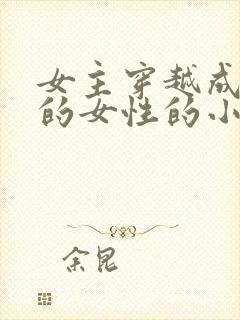 女主穿越成
的女性的小
余昆